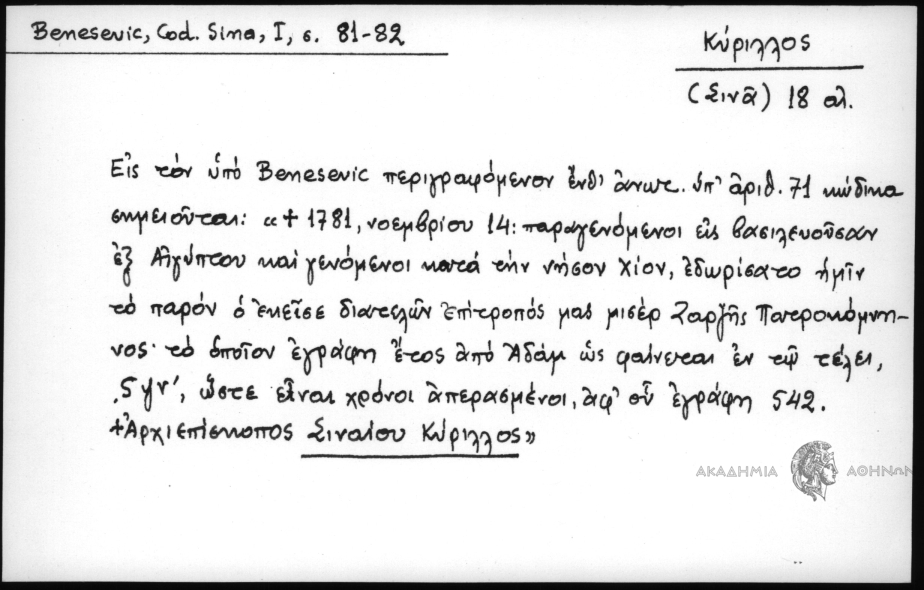 Benesevic, Cod. Sina, I, σ. 81-82
Κύριλλος
(Σινᾶ) 18 αἰ.
Εἰς τόν ὑπό Benesevic περιγραφόμενον ἔνθ' ἄνωτ. ὑπ' ἀριθ. 71 κώδικα
σημειοῦται: «+ 1781, νοεμβρίου 14: παραγενόμενοι εἰς βασιλεύουσαν
ἐξ Αἰγύπτου καί γενόμενοι κατά τήν νῆσον Χίον, ἐδωρίσατο ἡμῖν
τό παρόν ὁ ἐκεῖσε διατελῶν ἐπίτροπός μας μισέρ Ζαρζῆς Πατροκόμνη-
νος· τό ὁποῖον ἐγράφη ἔτος ἀπό Ἀδάμ ὡς φαίνεται ἐν τῷ τέλει,
͵ςψν', ὥστε εἶναι χρόνοι ἀπερασμένοι, ἀφ' οὗ ἐγράφη 542.
+Ἀρχιεπίσκοπος Σιναίου Κύριλλος»
ΑΚΑΔΗΜΙΑ ΑΘΗΝΩΝ